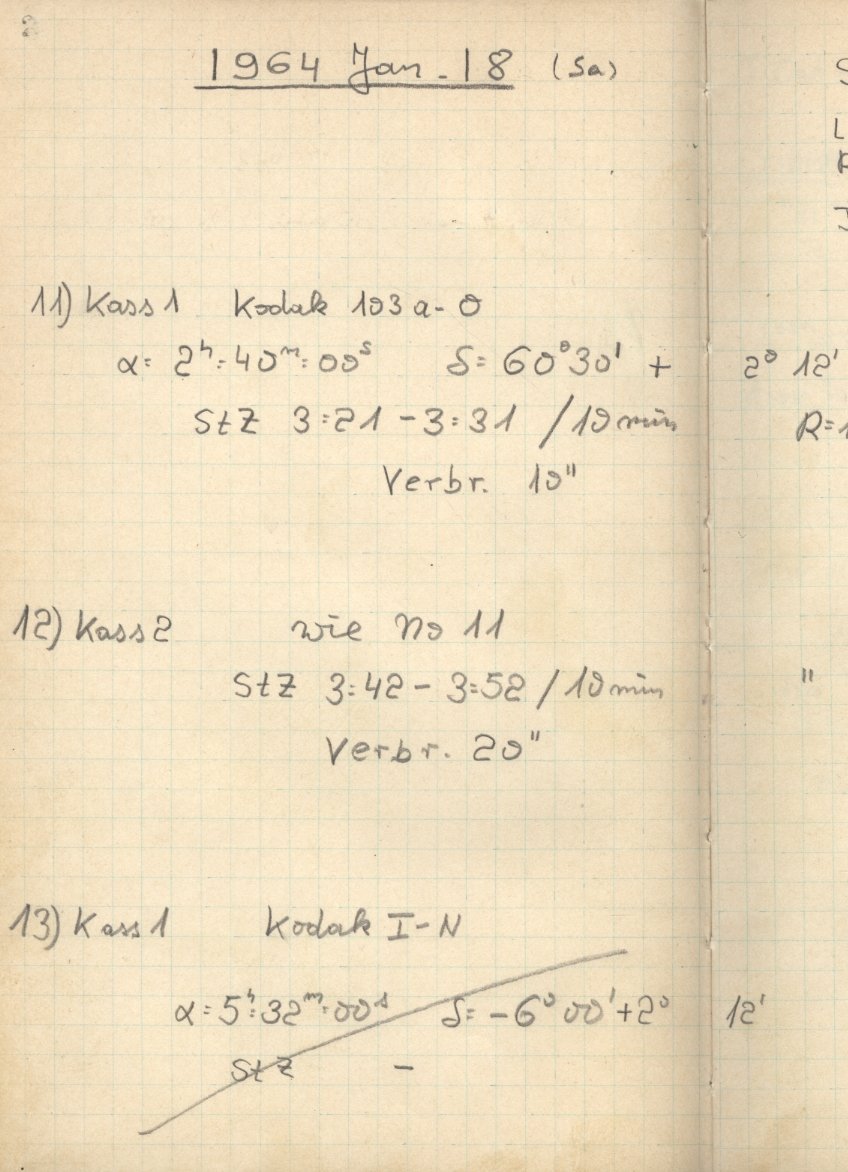 1964 Jan. 18 (Sa)
11) Kass 1 Kodak 103 a-O
α= 2ʰ:40ᵐ:00ˢ δ= 60°30' + 2° 12'
StZ 3:21 - 3:31 / 10 min R=1
Verbr. 10"
12) Kass 2 wie No 11
StZ 3:42 - 3:52 / 10 min "
Verbr. 20"
13) Kass 1 Kodak I-N
α= 5ʰ:32ᵐ:00ˢ δ= -6° 00' + 2° 12'
StZ -